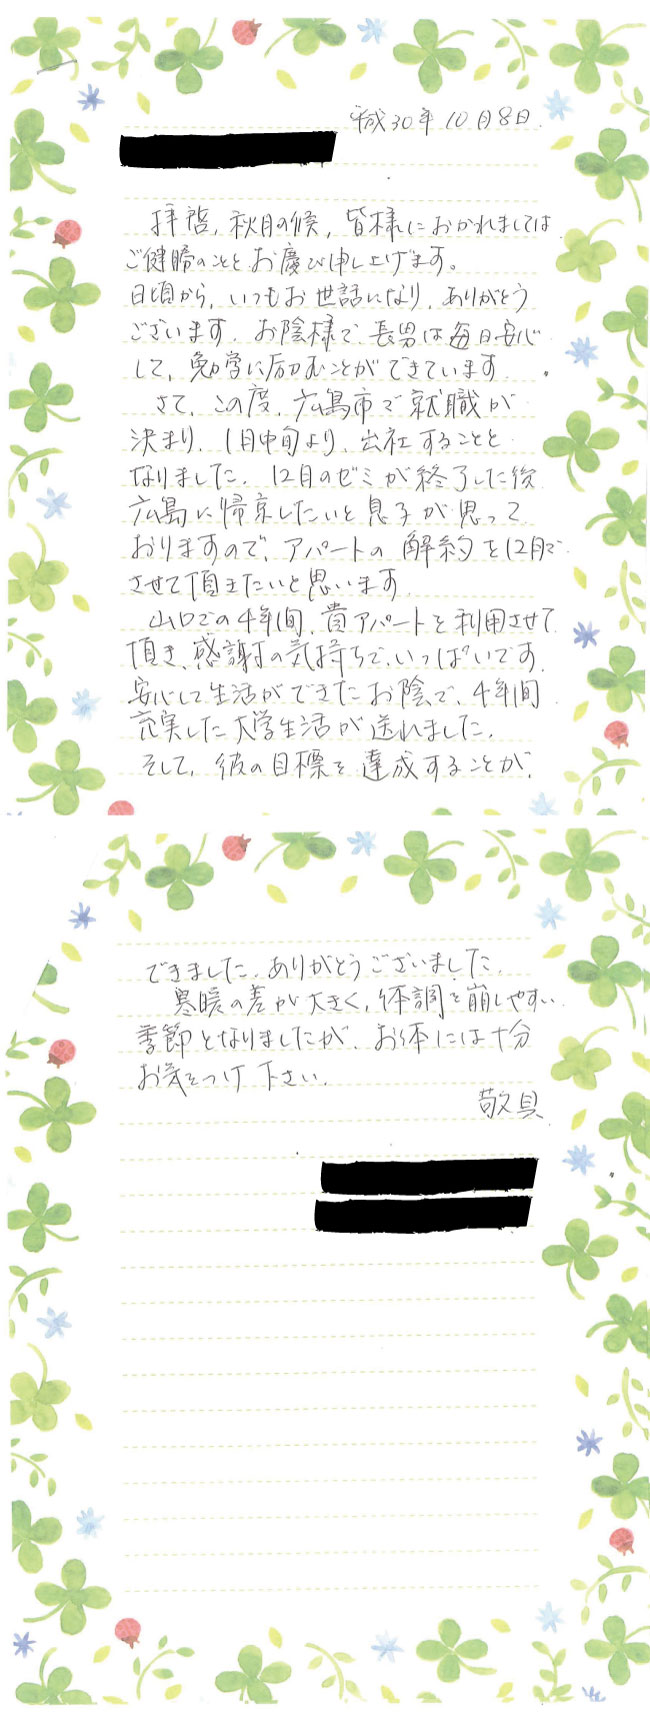 平成30年10月8日
拝啓,秋月の候,皆様におかれましては
ご健勝のこととお慶び申し上げます。
日頃から,いつもお世話になり,ありがとう
ございます.お陰様で,長男は毎日安心
して,勉学に励むことができています.
さて,この度,広島市で就職が
決まり,1月中旬より,出社することと
なりました.12月のゼミが終了した後
広島に帰京したいと息子が思って
おりますので,アパートの解約を12月で
させて頂きたいと思います
山口での4年間,貴アパートを利用させて
頂き、感謝の気持ちで,いっぱいです.
安心して生活ができたお陰で,4年間
充実した大学生活が送れました.
そして,彼の目標を達成することが,
できました.ありがとうございました.
寒暖の差が大きく,体調を崩しやすい
季節となりましたが.お体には十分
お気をつけ下さい.
敬具